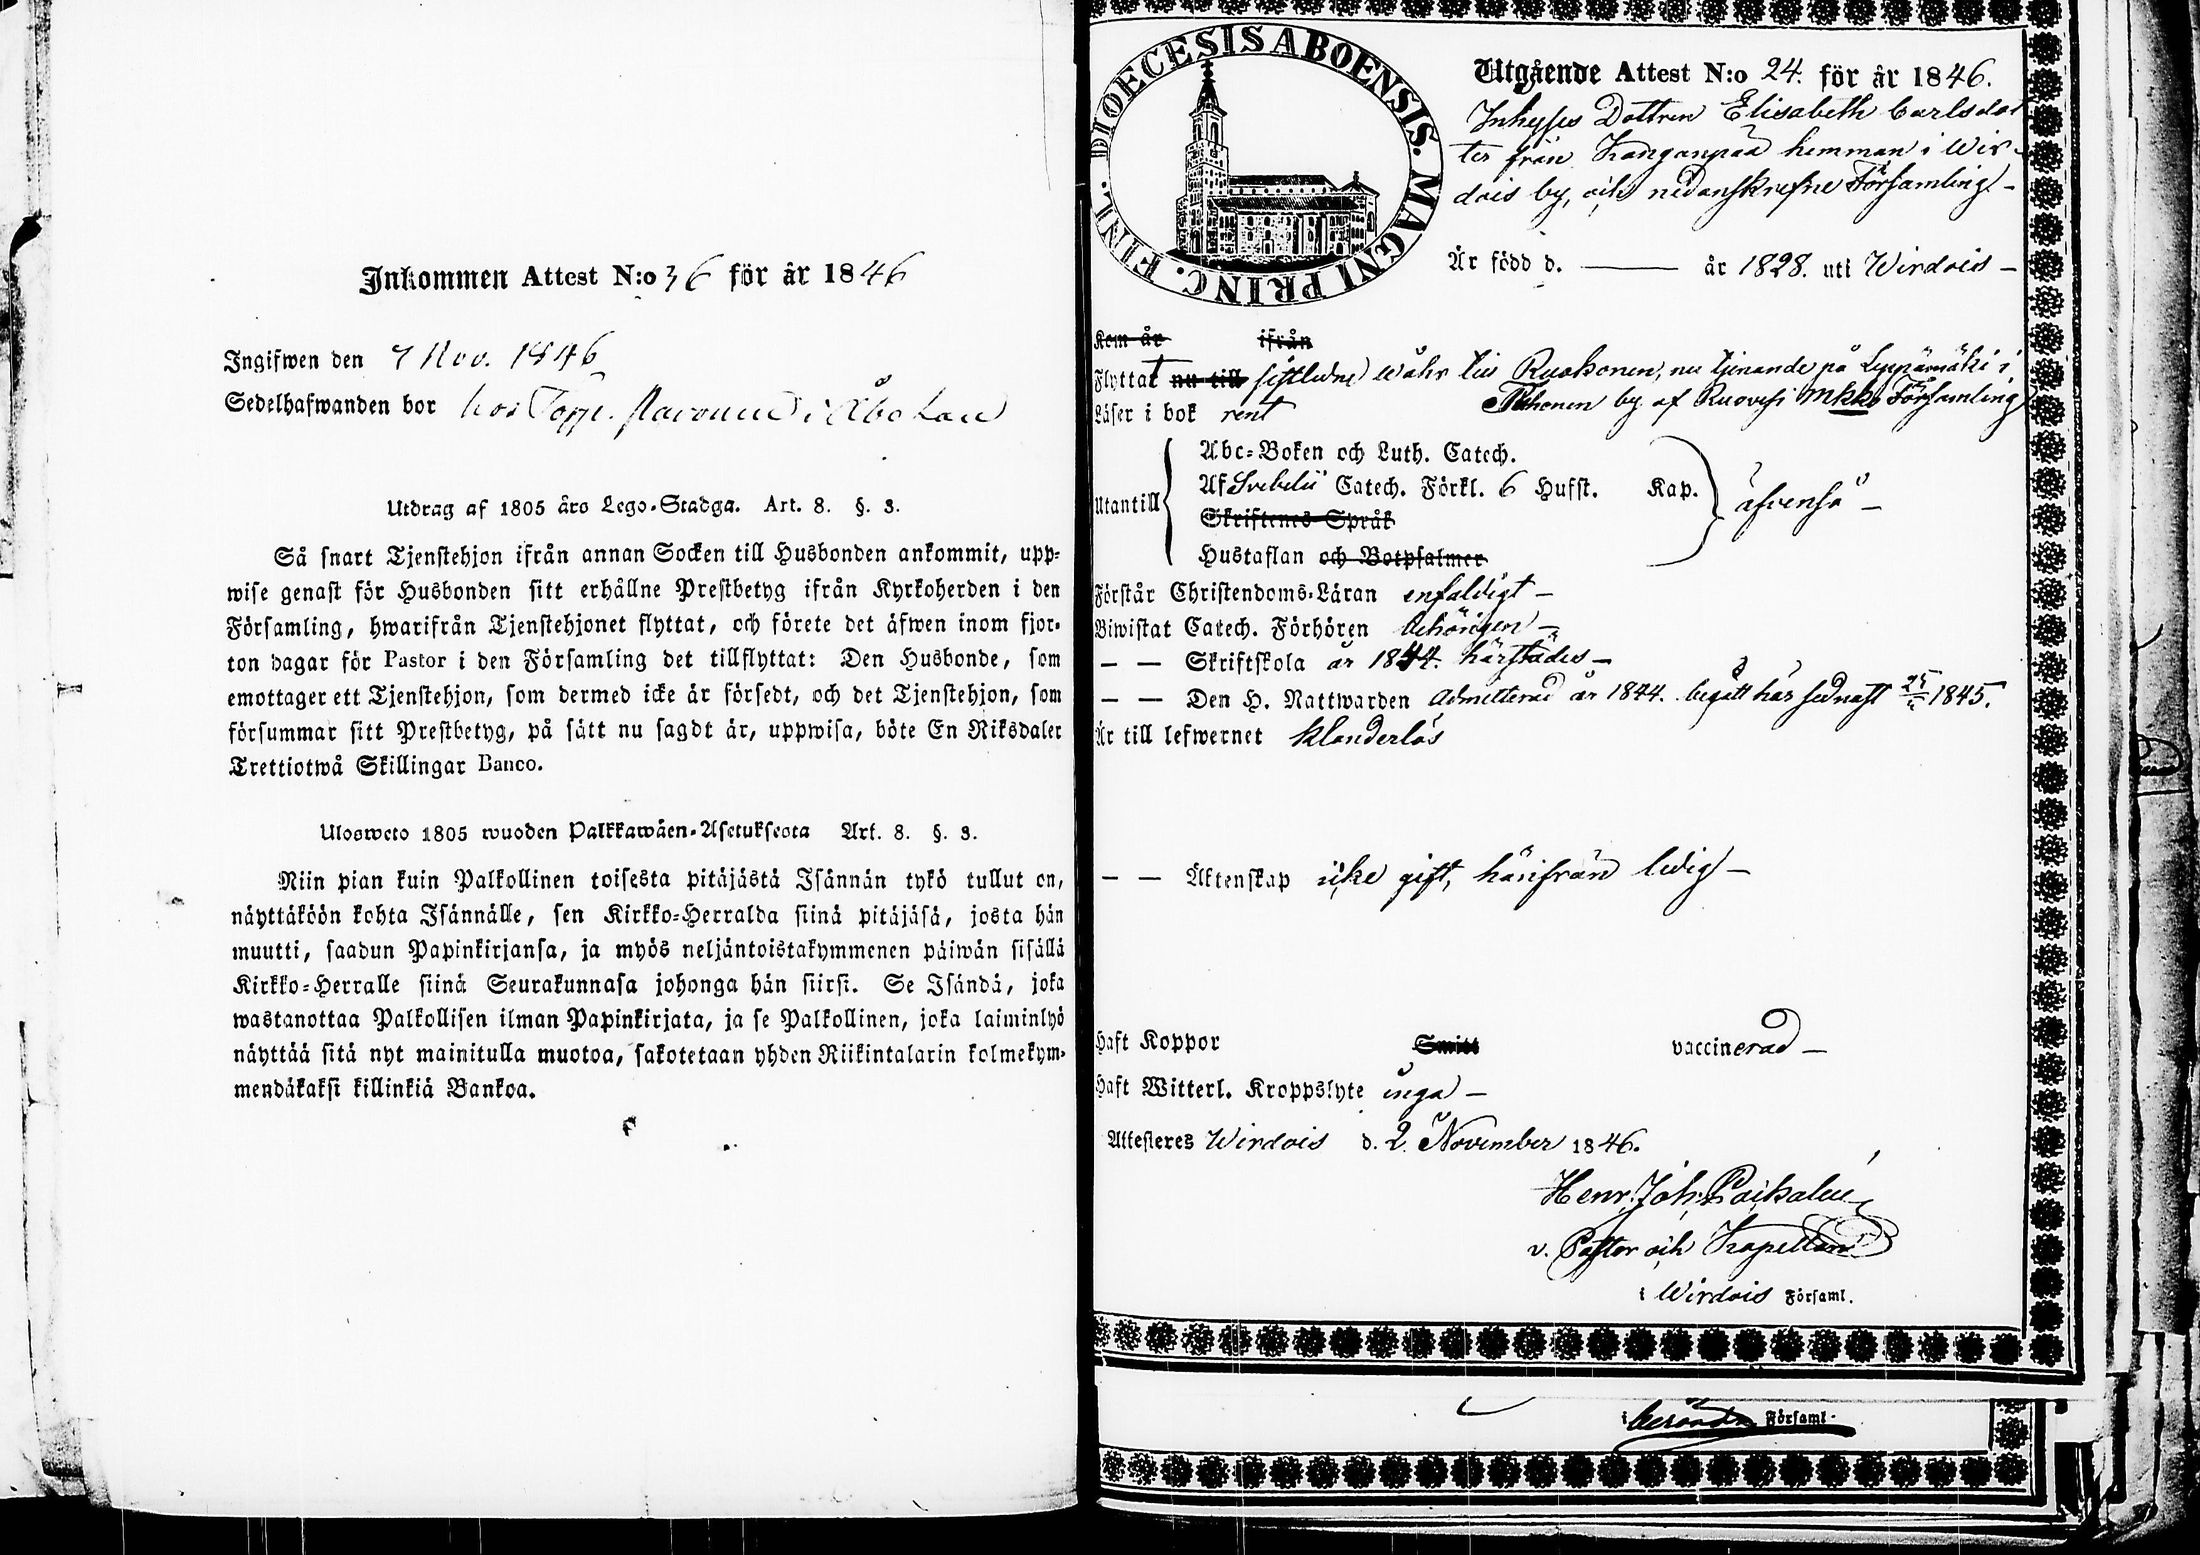 Inkommen Attest N:o 36 för år 1846
Ingifwen den 7 Nov. 1846
Sedelhafwanden bor hos Torp. i Åbo Län
Utdrag af 1805 års Lego-Stadga. Art. 8. §. 3.
Så snart Tjenstehjon ifrån annan Socken till Husbonden ankommit, upp-
wise genast för Husbonden sitt erhållne Prestbetyg ifrån Kyrkoherden i den
Församling, hwarifrån Tjenstehjonet flyttat, och förete det äfwen inom fjor-
ton dagar för Pastor i den Församling det tillflyttat: Den Husbonde, som
emottager ett Tjenstehjon, som dermed icke är försedt, och det Tjenstehjon, som
försummar sitt Prestbetyg, på sätt nu sagdt är, uppwisa, böte En Riksdaler
Trettiotwå Skillingar Banco.
Ulosweto 1805 wuoden Palkkawäen-Asetuksesta Art. 8. §. 3.
Niin pian kuin Palkollinen toisesta pitäjästä Isännän tykö tullut on,
näyttäköön kohta Isännälle, sen Kirkko-Herralda siinä pitäjäsä, josta hän
muutti, saadun Papinkirjansa, ja myös neljäntoistakymmenen päiwän sisällä
Kirkko-Herralle siinä Seurakunnasa johonga hän siirsi. Se Isändä, joka
wastanottaa Palkollisen ilman Papinkirjata, ja se Palkollinen, joka laiminlyö
näyttää sitä nyt mainitulla muotoa, sakotetaan yhden Riikintalarin kolmekym-
mendäkaksi killinkiä Bankoa.
FINL. DIOECESIS ABOENSIS. MAGNI PRINC.
Utgående Attest N:o 24. för år 1846.
Inhyses Dottren Elisabeth Carlsdot
ter från Kanganpää hemman i Wir-
dois by, och nedanskrefne Församling –
Är född d. — år 1828. uti Wirdois –
Kom år ifrån
Flyttat nu till sistledne wåhr till Ruokonen, nu tjenande på Leppämäki i
by af Ruovesi Mkko Församling
Läser i bok rent
Utantill
Abc-Boken och Luth. Catech.
Af Svebelii Catech. Förkl. 6 Hufst. Kap.
äfvenså –
Skriftenes Språk
Hustaflan och Botpsalmer
Förstår Christendoms-Läran enfaldigt –
Biwistat Catech. Förhören behörigen –
— — Skriftskola år 1844. härstädes –
— — Den H. Nattwarden admitterad år 1844. begått här sednast 1845.
Är till lefwernet klanderlös
— — Äktenskap icke gift, härifrån ledig –
Haft Koppor Smitt vaccinerad –
Haft Witterl. Kroppslyte inga –
Attesteres Wirdois d. 2. November 1846.
Henr. Joh.
v. Pastor och Kapellan
i Wirdois Församl.
i Församl.